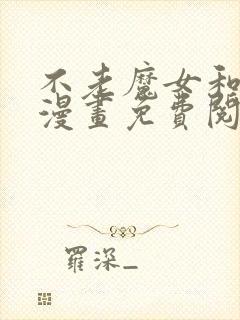 不老魔女和
漫畫免費閱
羅深_